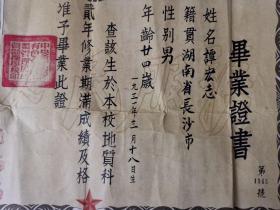 畢業證書
第
1965
號
姓名譚宏志
籍貫湖南省長沙市
性別男
年齡廿四歲
一九三一年二月十八日生
查該生於本校地質科
貳年修業期滿成績及格
准予畢業此證